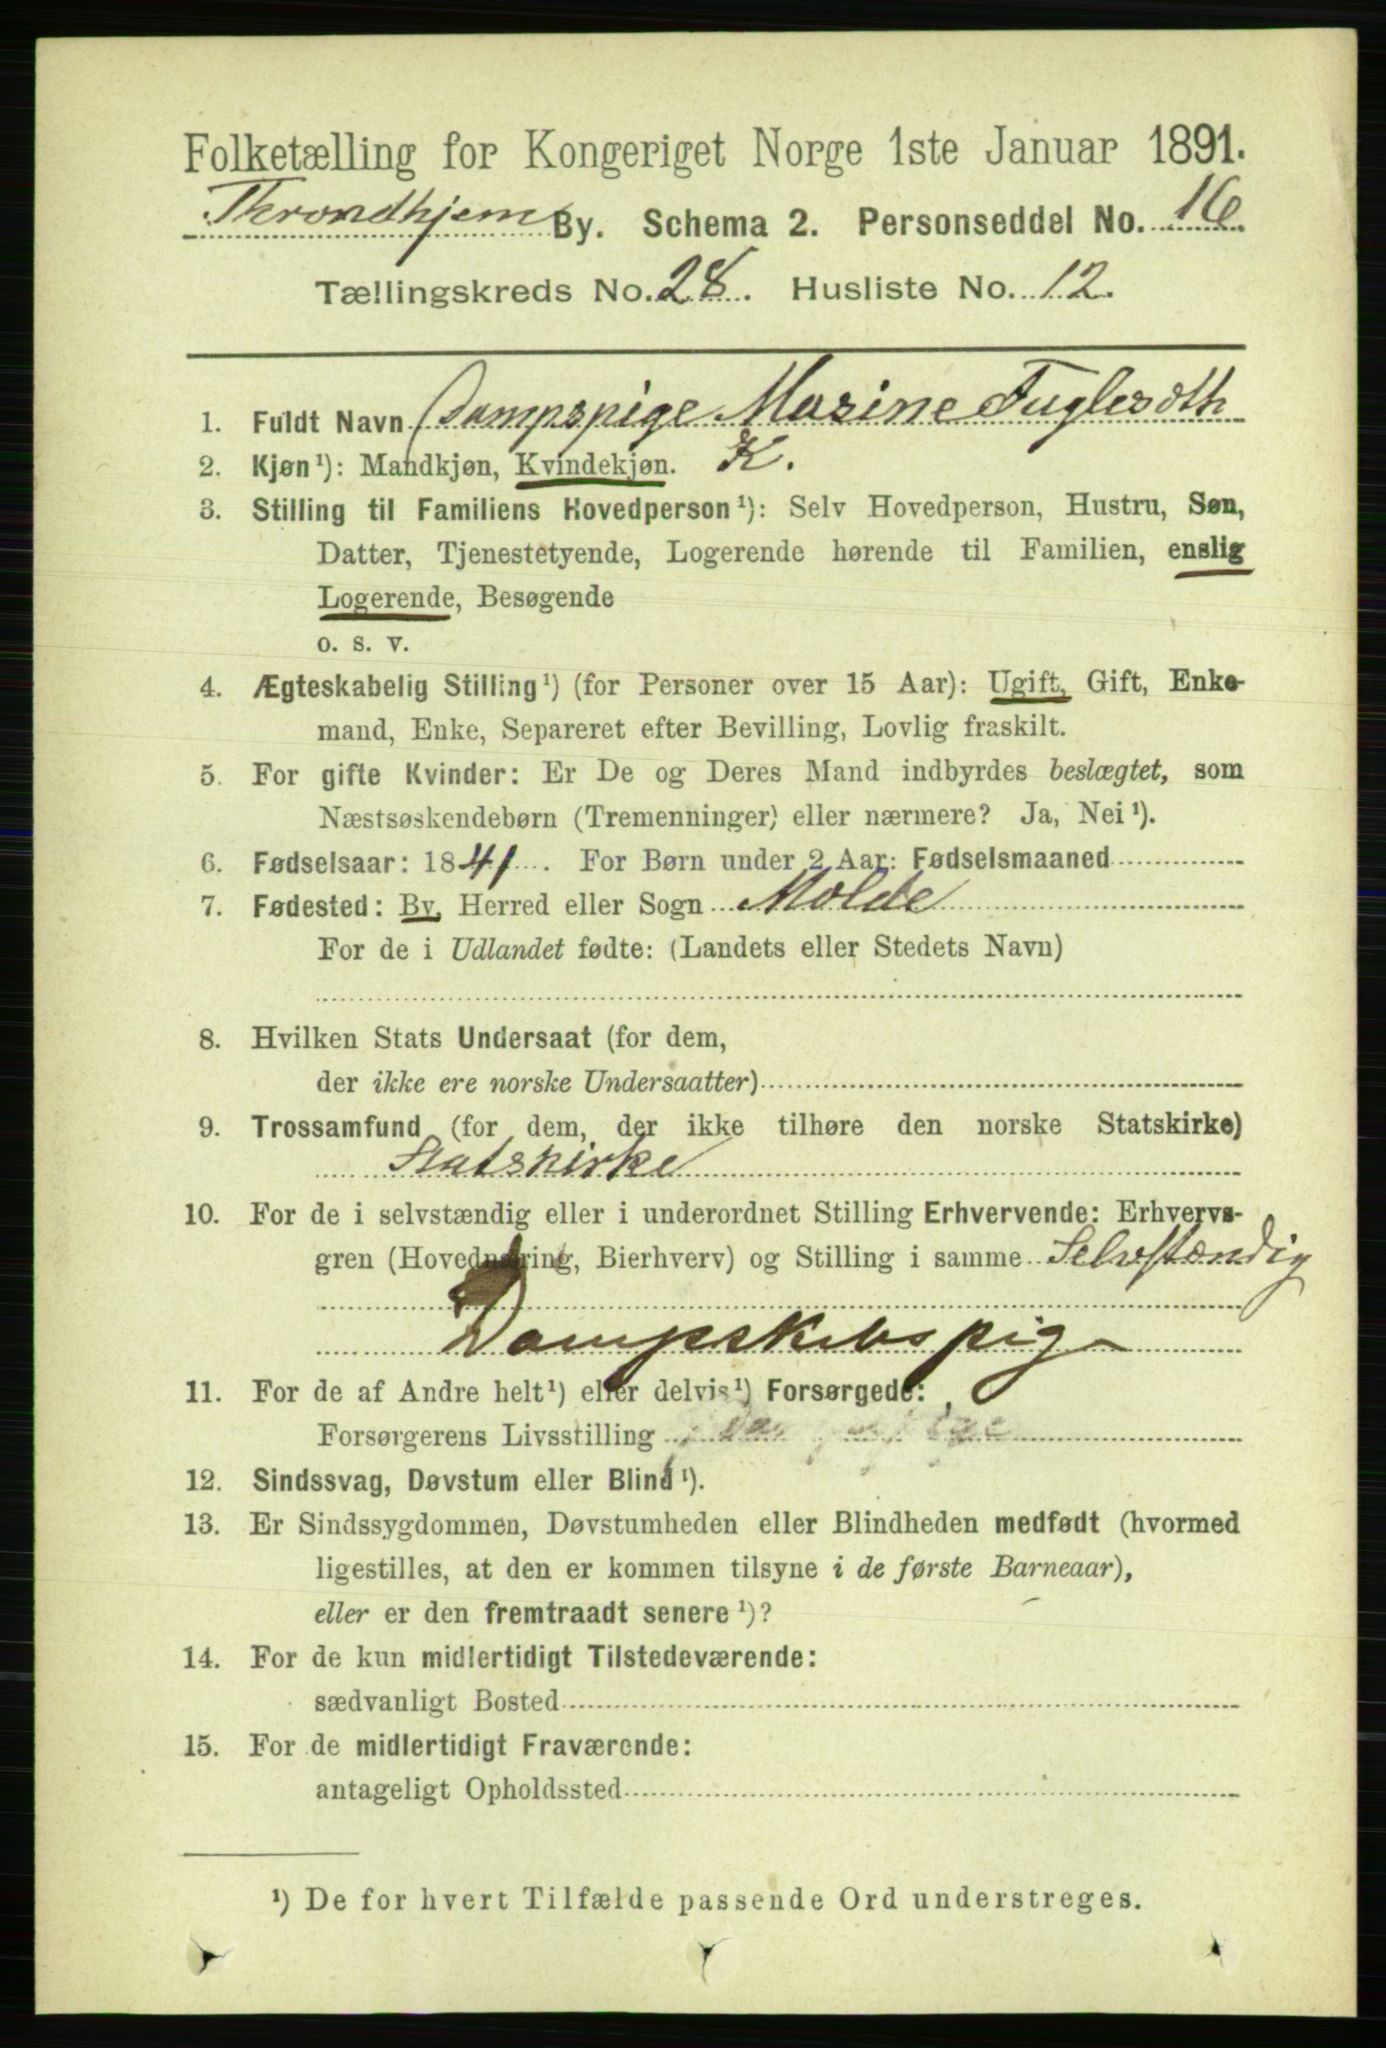 Folketælling for Kongeriget Norge 1ste Januar 1891.
Throndhjem By. Schema 2. Personseddel No. 16.
Tællingskreds No. 28. Husliste No. 12.
1. Fuldt Navn Dampspige Marine Fuglesøth
2. Kjøn¹): Mandkjøn, Kvindekjøn. K.
3. Stilling til Familiens Hovedperson¹): Selv Hovedperson, Hustru, Søn,
Datter, Tjenestetyende, Logerende hørende til Familien, enslig
Logerende, Besøgende
o. s. v.
4. Ægteskabelig Stilling¹) (for Personer over 15 Aar): Ugift, Gift, Enke-
mand, Enke, Separeret efter Bevilling, Lovlig fraskilt.
5. For gifte Kvinder: Er De og Deres Mand indbyrdes beslægtet, som
Næstsøskendebørn (Tremenninger) eller nærmere? Ja, Nei¹).
6. Fødselsaar: 1841. For Børn under 2 Aar: Fødselsmaaned
7. Fødested: By, Herred eller Sogn Molde
For de i Udlandet fødte: (Landets eller Stedets Navn)
8. Hvilken Stats Undersaat (for dem,
der ikke ere norske Undersaatter)
9. Trossamfund (for dem, der ikke tilhøre den norske Statskirke)
Statskirke
10. For de i selvstændig eller i underordnet Stilling Erhvervende: Erhvervs-
gren (Hovednæring, Bierhverv) og Stilling i samme Selvstændig
Dampskibspige
11. For de af Andre helt¹) eller delvis¹) Forsørgede:
Forsørgerens Livsstilling
12. Sindssvag, Døvstum eller Blind¹).
13. Er Sindssygdommen, Døvstumheden eller Blindheden medfødt (hvormed
ligestilles, at den er kommen tilsyne i de første Barneaar),
eller er den fremtraadt senere¹)?
14. For de kun midlertidigt Tilstedeværende:
sædvanligt Bosted
15. For de midlertidigt Fraværende:
antageligt Opholdssted
¹) De for hvert Tilfælde passende Ord understreges.